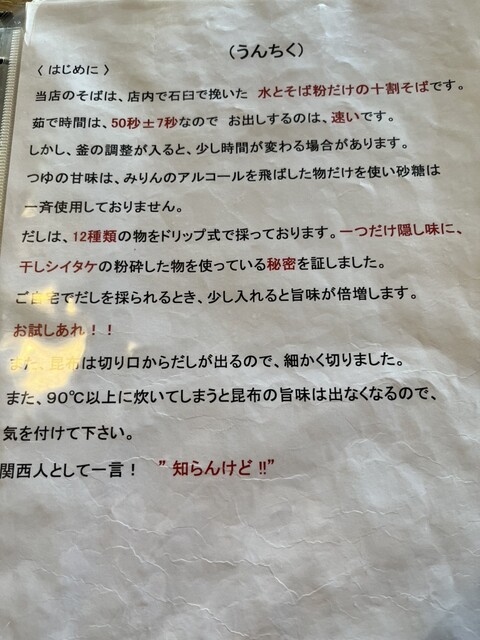 （うんちく）
〈 はじめに 〉
当店のそばは、店内で石臼で挽いた 水とそば粉だけの十割そばです。
茹で時間は、50秒±7秒なので お出しするのは、速いです。
しかし、釜の調整が入ると、少し時間が変わる場合があります。
つゆの甘味は、みりんのアルコールを飛ばした物だけを使い砂糖は
一斉使用しておりません。
だしは、12種類の物をドリップ式で採っております。一つだけ隠し味に、
干しシイタケの粉砕した物を使っている秘密を証しました。
ご自宅でだしを採られるとき、少し入れると旨味が倍増します。
お試しあれ！！
また、昆布は切り口からだしが出るので、細かく切りました。
また、90℃以上に炊いてしまうと昆布の旨味は出なくなるので、
気を付けて下さい。
関西人として一言！ ”知らんけど‼”